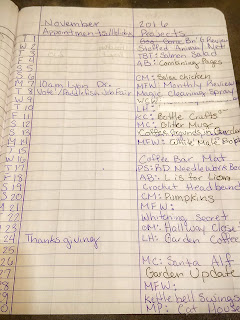 November 2016
Appointments/Holidays Projects
T 1 Gone Girl Review
W 2 Stuffed Animal Net
T 3 TBT: Salmon Salad
F 4 AB: Combining Pages
S 5
S 6 CM: Salsa Chicken
M 7 10am Lyon Dr. MFW Monthly Review
T 8 Vote/Paddleton Job Fair Magic Cleaning Spray
W 9
T 10 LH:
F 11 KC: Bottle Crafts
S 12 MC: Glitter Mugs
S 13 Coffee Grounds in Garden
M 14 MFW:
T 15
W 16 Coffee Bar Mat
T 17 PS: RD Needlework
F 18 AB: L is for Lion
S 19 Crochet Headband
S 20 CM: Pumpkins
M 21 MFW:
T 22 Whitening Secret
W 23 OM: Hallway Close
T 24 Thanksgiving LH: Garden Coffee
F 25
26 MC: Santa Alf
27 Garden Update
28 MFW:
29 Kettlebell Swings
30 MP: Cat House